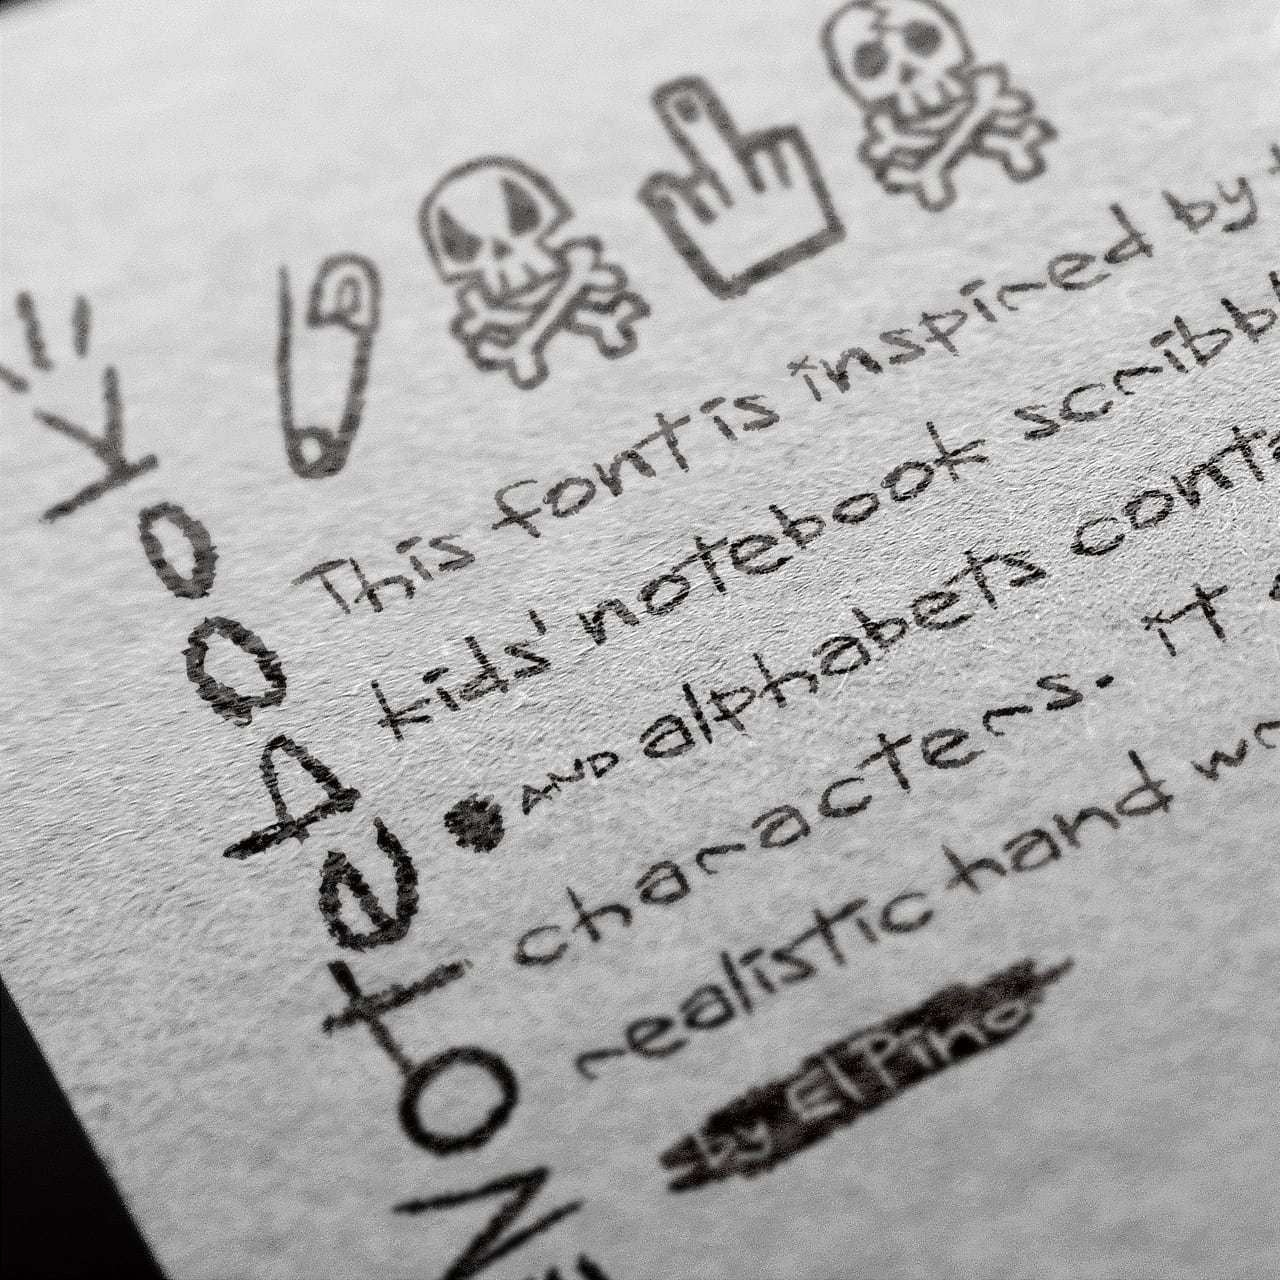 "Notebook"
This font is inspired by t
kids' notebook scribb
AND alphabets conta
characters. it
realistic hand wr
by El Pino